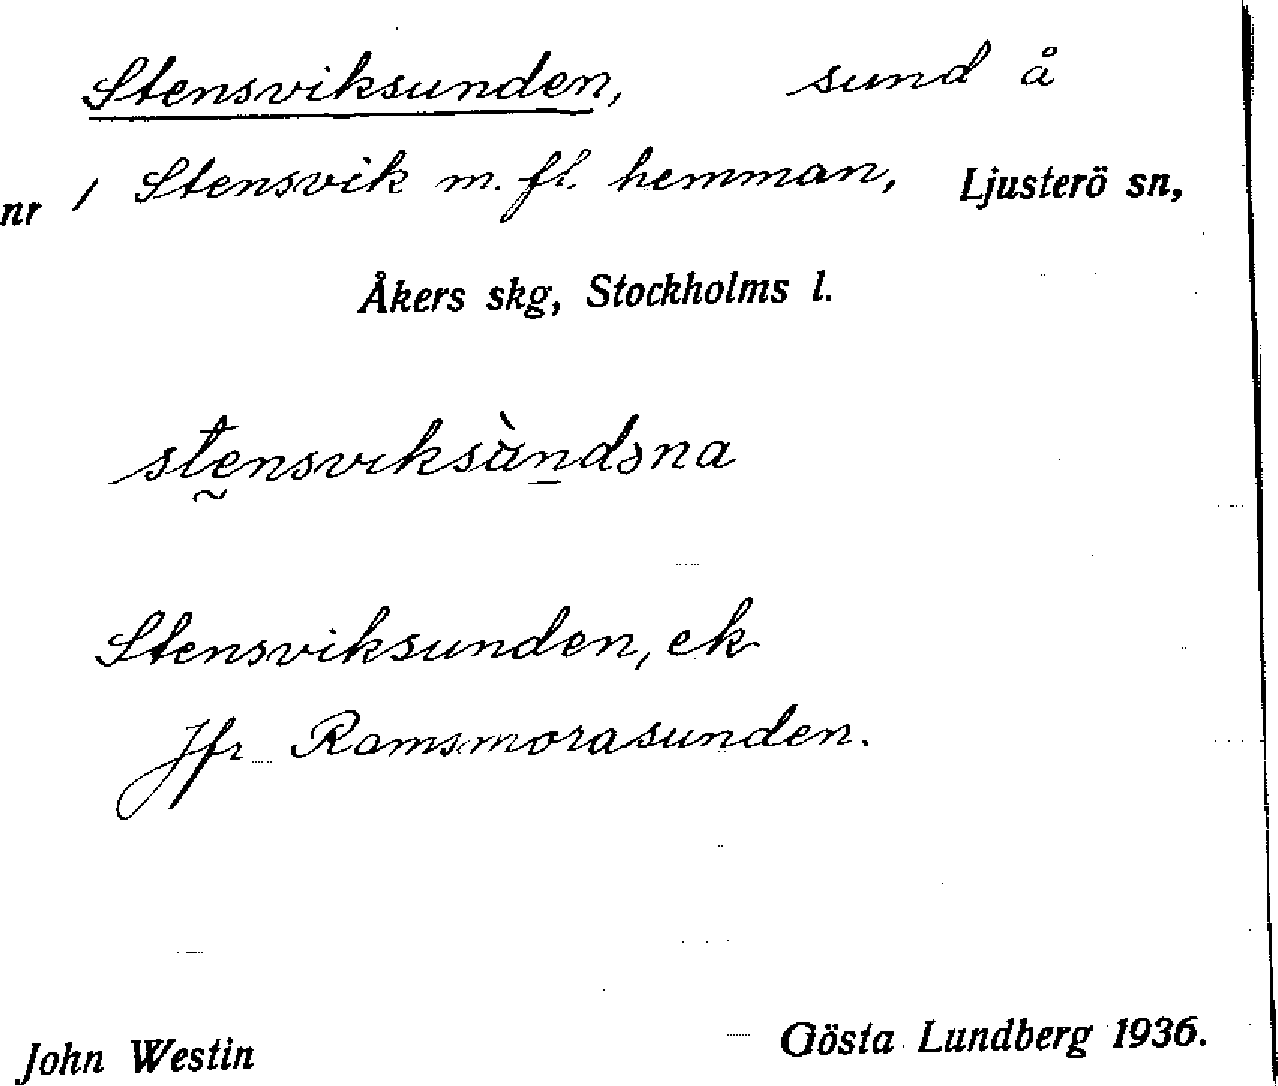 Stensviksunden, sund å
nr 1 Stensvik m. fl. hemman, Ljusterö sn,
Åkers skg, Stockholms l.
stensviksùndəna
Stensviksunden, ek
Jfr Ramsmorasunden.
John Westin Gösta Lundberg 1936.